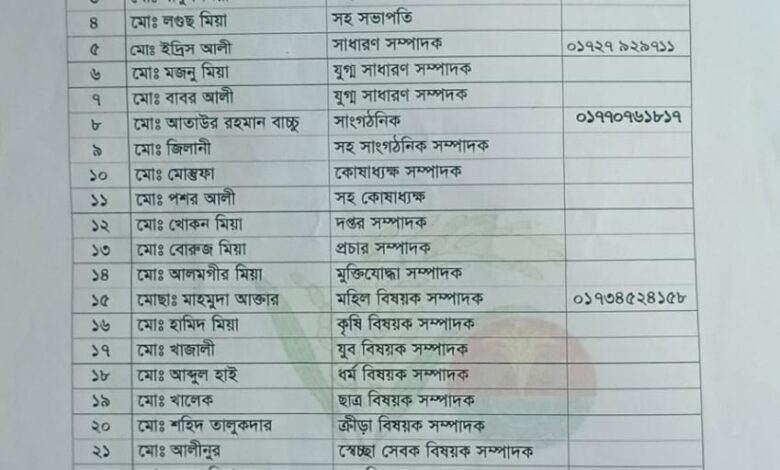 ৪ মোঃ লগুছ মিয়া সহ সভাপতি
৫ মোঃ ইদ্রিস আলী সাধারণ সম্পাদক ০১৭২৭ ৯২৯৭১১
৬ মোঃ মজনু মিয়া যুগ্ম সাধারণ সম্পাদক
৭ মোঃ বাবর আলী যুগ্ম সাধারণ সম্পদক
৮ মোঃ আতাউর রহমান বাচ্চু সাংগঠনিক ০১৭৭০৭৬১৮১৭
৯ মোঃ জিলানী সহ সাংগঠনিক সম্পাদক
১০ মোঃ মোস্তফা কোষাধ্যক্ষ সম্পাদক
১১ মোঃ পশর আলী সহ কোষাধ্যক্ষ
১২ মোঃ খোকন মিয়া দপ্তর সম্পাদক
১৩ মোঃ বোরুজ মিয়া প্রচার সম্পাদক
১৪ মোঃ আলমগীর মিয়া মুক্তিযোদ্ধা সম্পাদক
১৫ মোছাঃ মাহমুদা আক্তার মহিল বিষয়ক সম্পাদক ০১৭৩৪৫২৪১৫৮
১৬ মোঃ হামিদ মিয়া কৃষি বিষয়ক সম্পাদক
১৭ মোঃ খাজালী যুব বিষয়ক সম্পাদক
১৮ মোঃ আব্দুল হাই ধর্ম বিষয়ক সম্পাদক
১৯ মোঃ খালেক ছাত্র বিষয়ক সম্পাদক
২০ মোঃ শহিদ তালুকদার ক্রীড়া বিষয়ক সম্পাদক
২১ মোঃ আলীনুর স্বেচ্ছা সেবক বিষয়ক সম্পাদক